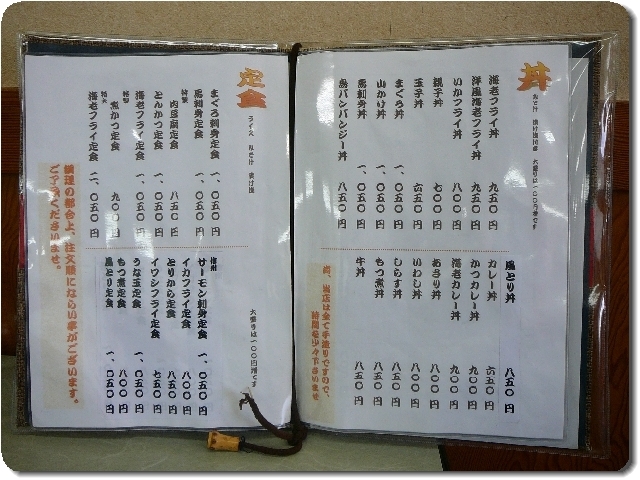 丼
みそ汁 漬け物付き 大盛りは一〇〇円増です
海老フライ丼 九五〇円
洋風海老フライ丼 九五〇円
いかフライ丼 八〇〇円
親子丼 七〇〇円
玉子丼 六五〇円
まぐろ丼 一、〇五〇円
山かけ丼 一、〇五〇円
馬刺身丼 一、〇五〇円
鳥バンバンジー丼 八五〇円
鳥とり丼 八五〇円
カレー丼 六五〇円
かつカレー丼 九〇〇円
海老カレー丼 九〇〇円
あさり丼 八〇〇円
いわし丼 八五〇円
しらす丼 八五〇円
もつ煮丼 八五〇円
牛丼 八五〇円
尚、当店は全て手造りですので、
時間を少々下さいませ
定食
ライス みそ汁 漬け物
大盛りは一〇〇円増です
まぐろ刺身定食 一、〇五〇円
馬刺身定食 一、〇五〇円
特製
肉豆腐定食 八五〇円
とんかつ定食 一、〇五〇円
海老フライ定食 一、〇五〇円
特製
煮かつ定食 九〇〇円
特大
海老フライ定食 二、〇五〇円
信州
サーモン刺身定食 一、〇五〇円
イカフライ定食 八〇〇円
とりから定食 八五〇円
イワシフライ定食 七五〇円
うな玉定食 一、〇五〇円
もつ煮定食 八〇〇円
鳥とり定食 一、〇〇〇円
調理の都合上、注文順にならい事がございます。
ご了承くださいませ。